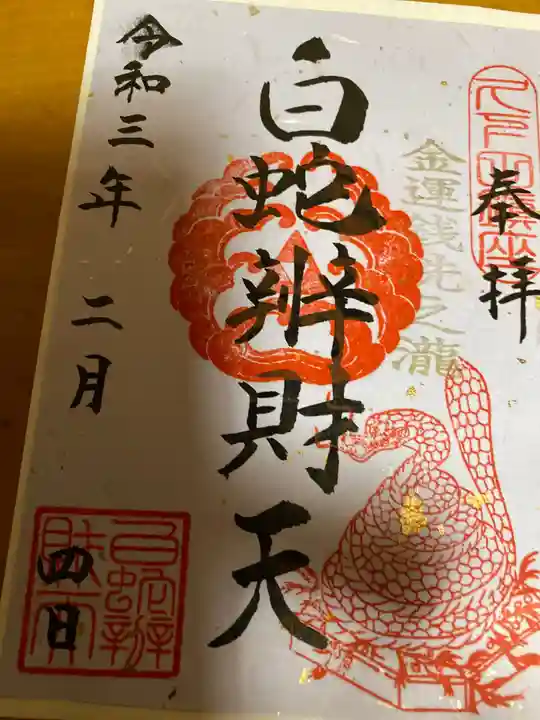 奉拝
金運銭洗之瀧
白蛇辨財天
令和三年 二月
四日
白蛇辨
財天